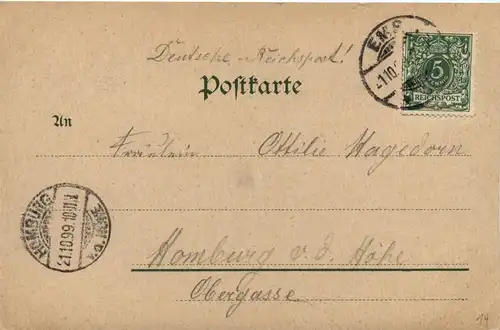 Deutsche Reichspost!
EMS
21.10.9
5
REICHSPOST
Postkarte
An
Fräulein Ottilie Hagedorn
HOMBURG
21.10.99.10-11V
Homburg v. d. Höhe
Obergasse
14